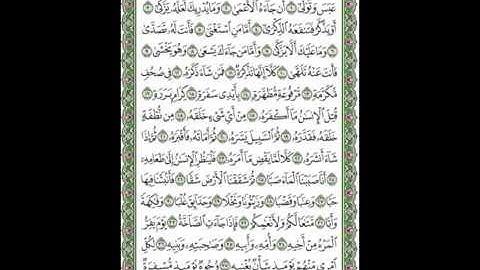 عَبَسَ وَتَوَلَّىٰٓ ١ أَن جَآءَهُ ٱلْأَعْمَىٰ ٢ وَمَا يُدْرِيكَ لَعَلَّهُۥ يَزَّكَّىٰٓ ٣
أَوْ يَذَّكَّرُ فَتَنفَعَهُ ٱلذِّكْرَىٰٓ ٤ أَمَّا مَنِ ٱسْتَغْنَىٰ ٥ فَأَنتَ لَهُۥ تَصَدَّىٰ
٦ وَمَا عَلَيْكَ أَلَّا يَزَّكَّىٰ ٧ وَأَمَّا مَن جَآءَكَ يَسْعَىٰ ٨ وَهُوَ يَخْشَىٰ ٩
فَأَنتَ عَنْهُ تَلَهَّىٰ ١٠ كَلَّآ إِنَّهَا تَذْكِرَةٌ ١١ فَمَن شَآءَ ذَكَرَهُۥ ١٢ فِى صُحُفٍ
مُّكَرَّمَةٍ ١٣ مَّرْفُوعَةٍ مُّطَهَّرَةٍۭ ١٤ بِأَيْدِى سَفَرَةٍ ١٥ كِرَامٍۭ بَرَرَةٍ ١٦
قُتِلَ ٱلْإِنسَٰنُ مَآ أَكْفَرَهُۥ ١٧ مِنْ أَىِّ شَىْءٍ خَلَقَهُۥ ١٨ مِن نُّطْفَةٍ
خَلَقَهُۥ فَقَدَّرَهُۥ ١٩ ثُمَّ ٱلسَّبِيلَ يَسَّرَهُۥ ٢٠ ثُمَّ أَمَاتَهُۥ فَأَقْبَرَهُۥ ٢١ ثُمَّ إِذَا
شَآءَ أَنشَرَهُۥ ٢٢ كَلَّا لَمَّا يَقْضِ مَآ أَمَرَهُۥ ٢٣ فَلْيَنظُرِ ٱلْإِنسَٰنُ إِلَىٰ طَعَامِهِۦٓ ٢٤
أَنَّا صَبَبْنَا ٱلْمَآءَ صَبًّا ٢٥ ثُمَّ شَقَقْنَا ٱلْأَرْضَ شَقًّا ٢٦ فَأَنۢبَتْنَا فِيهَا
حَبًّا ٢٧ وَعِنَبًا وَقَضْبًا ٢٨ وَزَيْتُونًا وَنَخْلًا ٢٩ وَحَدَآئِقَ غُلْبًا ٣٠ وَفَٰكِهَةً
وَأَبًّا ٣١ مَّتَٰعًا لَّكُمْ وَلِأَنْعَٰمِكُمْ ٣٢ فَإِذَا جَآءَتِ ٱلصَّآخَّةُ ٣٣ يَوْمَ يَفِرُّ
ٱلْمَرْءُ مِنْ أَخِيهِ ٣٤ وَأُمِّهِۦ وَأَبِيهِ ٣٥ وَصَٰحِبَتِهِۦ وَبَنِيهِ ٣٦ لِكُلِّ
ٱمْرِئٍ مِّنْهُمْ يَوْمَئِذٍ شَأْنٌ يُغْنِيهِ ٣٧ وُجُوهٌ يَوْمَئِذٍ مُّسْفِرَةٌ